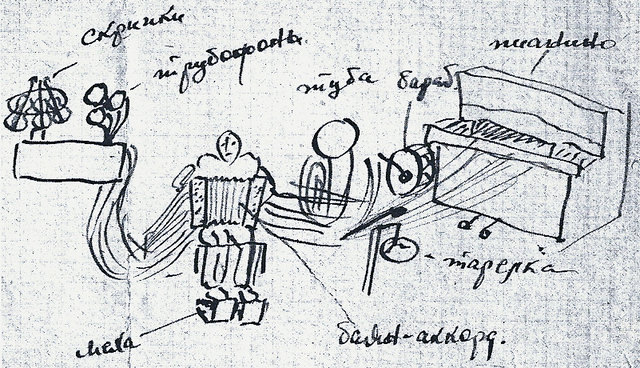 скрипки
трубофоны
туба
бараб.
пианино
тарелка
баян-аккорд.